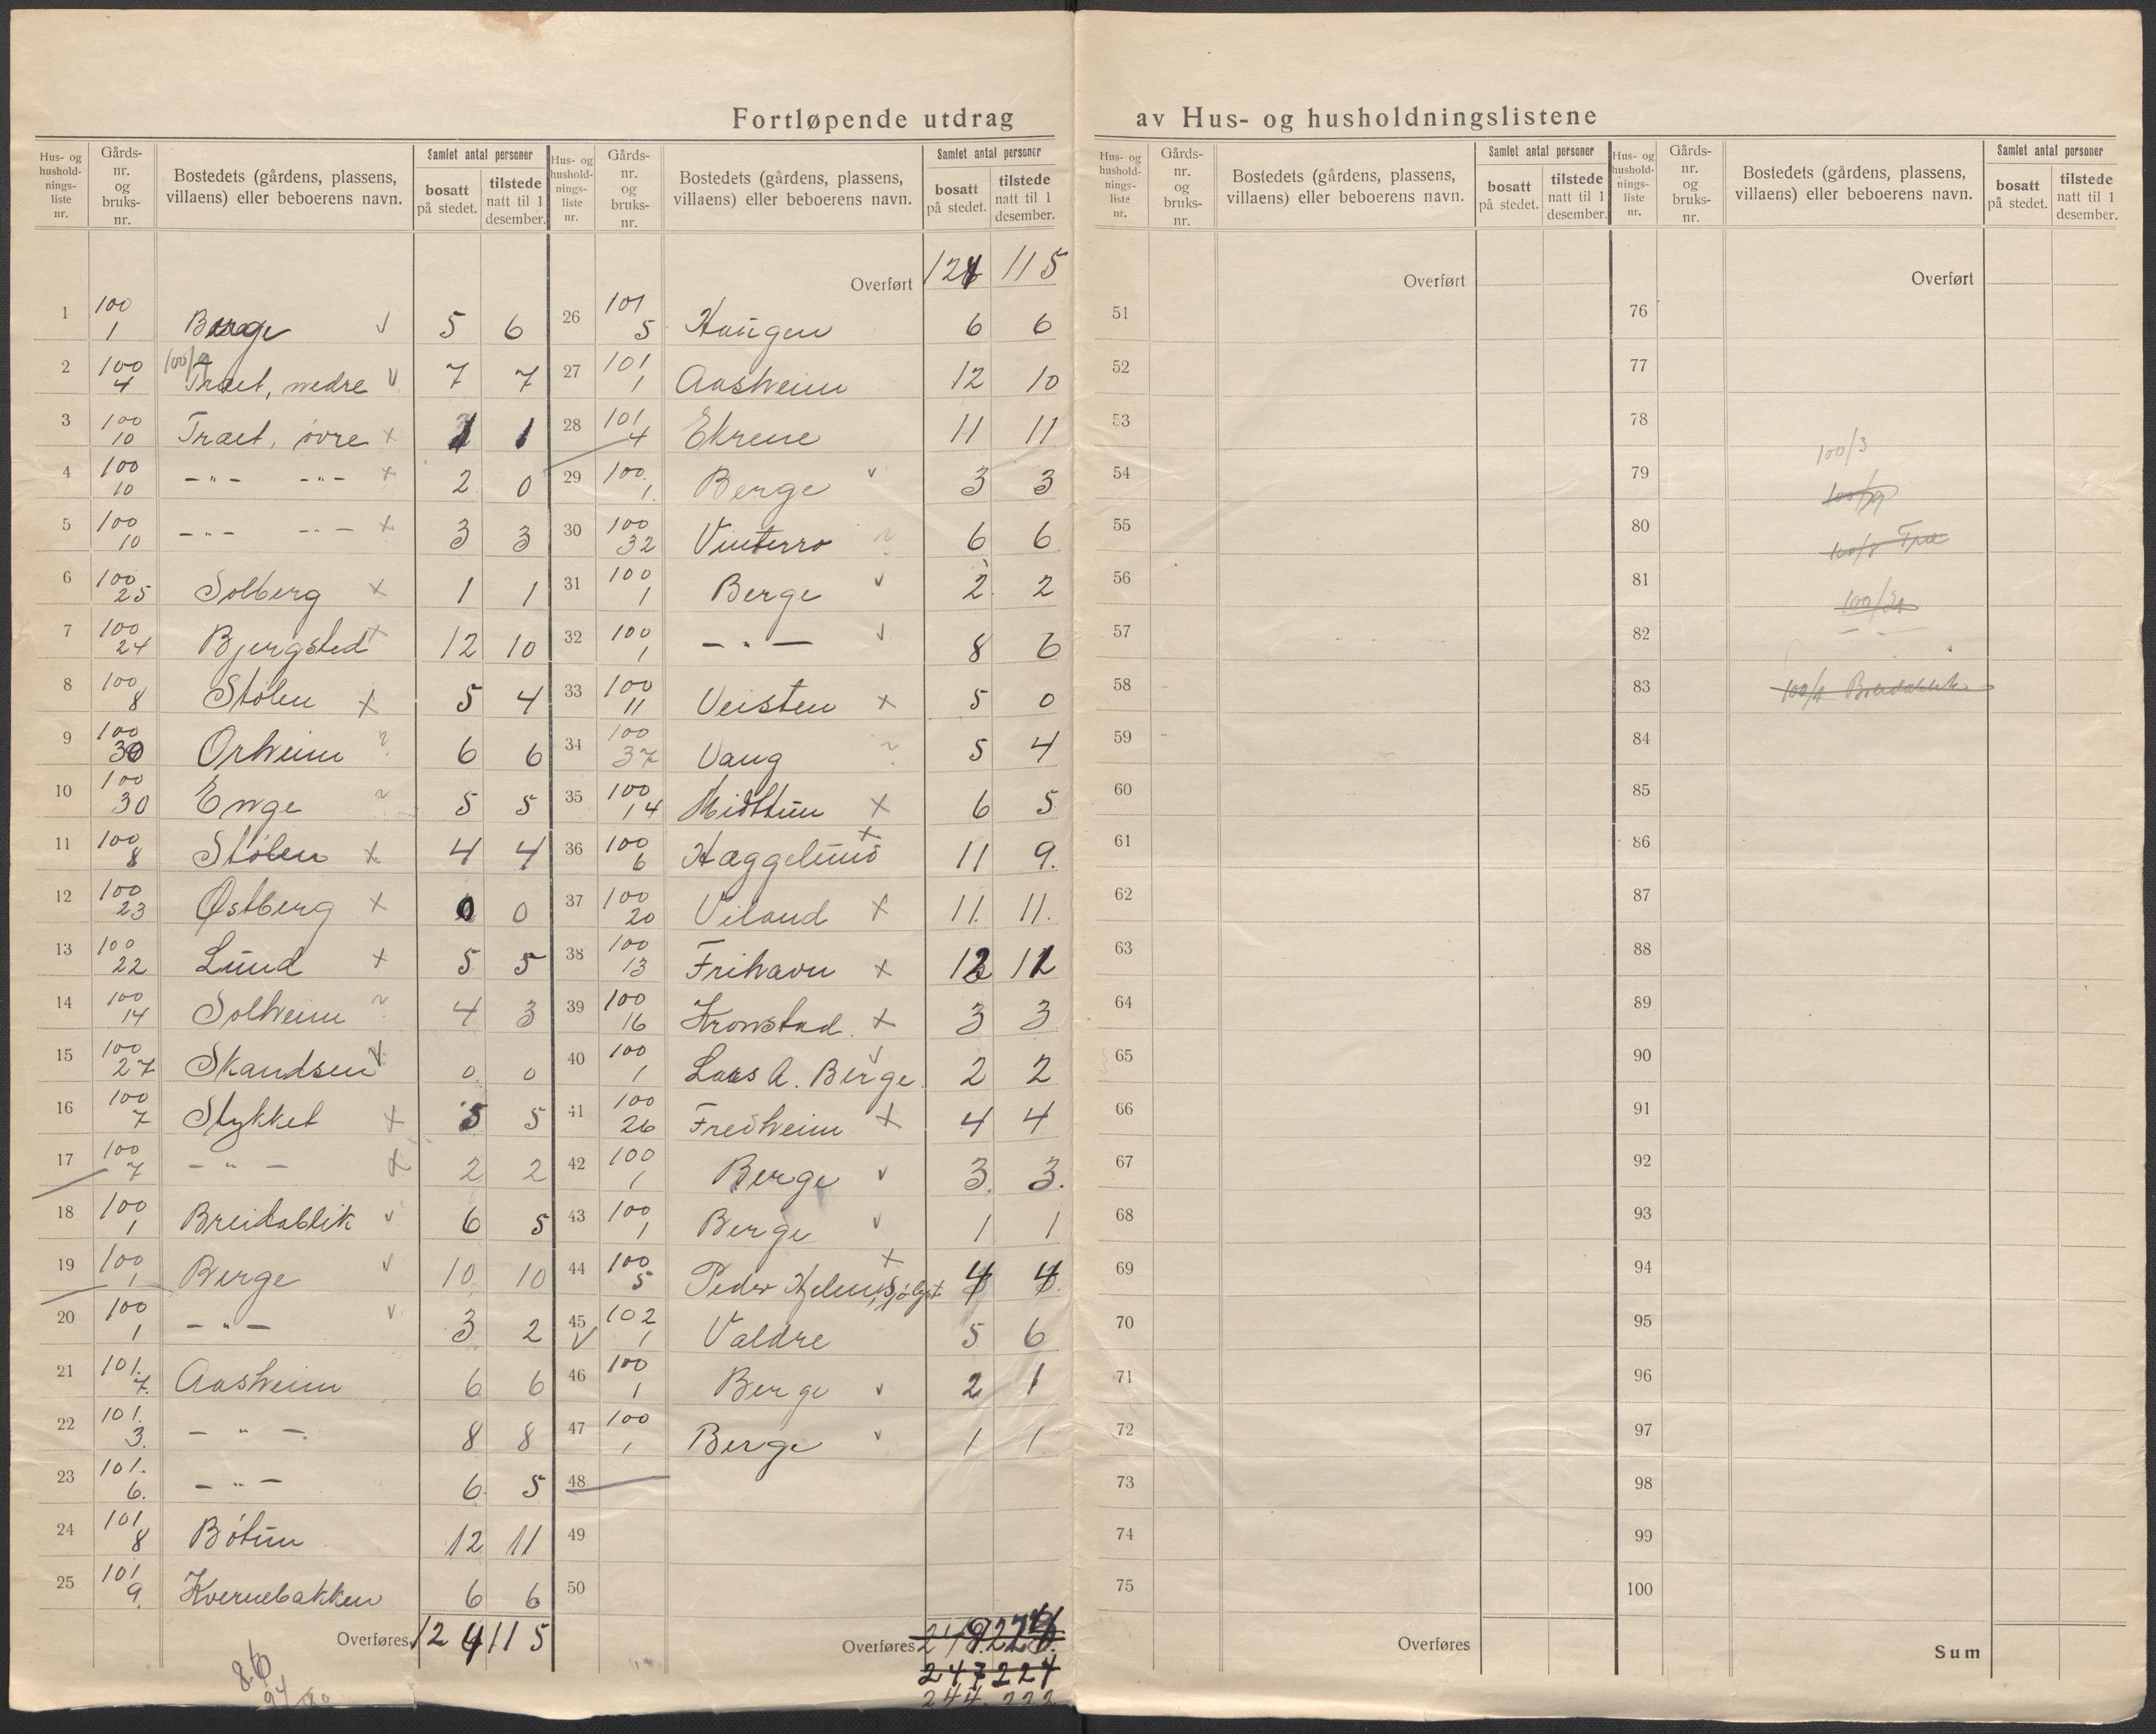 Fortløpende utdrag av Hus- og husholdningslistene
Hus- og husholdnings-liste nr. | Gårds-nr. og bruks-nr. | Bostedets (gårdens, plassens, villaens) eller beboerens navn. | Samlet antal personer | bosatt på stedet. | tilstede natt til 1 desember.
1 | 100/1 | Berge √ | 5 | 6
100/9
2 | 100/4 | Træet, nedre √ | 7 | 7
3 | 100/10 | Træet, øvre × | 1 | 1
4 | 100/10 | -"- -"- × | 2 | 0
5 | 100/10 | -"- -"- × | 3 | 3
6 | 100/25 | Solberg × | 1 | 1
7 | 100/24 | Bjergsted × | 12 | 10
8 | 100/8 | Stølen × | 5 | 4
9 | 100/30 | Orheim | 6 | 6
10 | 100/30 | Enge | 5 | 5
11 | 100/8 | Stølen × | 4 | 4
12 | 100/23 | Østberg × | 0 | 0
13 | 100/22 | Lund × | 5 | 5
14 | 100/14 | Solheim | 4 | 3
15 | 100/27 | Skandsen √ | 0 | 0
16 | 100/7 | Stykket × | 5 | 5
17 | 100/7 | -"- × | 2 | 2
18 | 100/1 | Breidablik √ | 6 | 5
19 | 100/1 | Berge √ | 10 | 10
20 | 100/1 | -"- √ | 3 | 2
21 | 101/7 | Aasheim | 6 | 6
22 | 101/3 | -"- | 8 | 8
23 | 101/6 | -"- | 6 | 5
24 | 101/8 | Bøtun | 12 | 11
25 | 101/9 | Kvernebakken | 6 | 6
Overføres | 124 | 115
86
94 80
Hus- og husholdnings-liste nr. | Gårds-nr. og bruks-nr. | Bostedets (gårdens, plassens, villaens) eller beboerens navn. | Samlet antal personer | bosatt på stedet. | tilstede natt til 1 desember.
Overført | 124 | 115
26 | 101/5 | Haugen | 6 | 6
27 | 101/1 | Aasheim | 12 | 10
28 | 101/4 | Ekrene | 11 | 11
29 | 100/1 | Berge √ | 3 | 3
30 | 100/32 | Vinterro | 6 | 6
31 | 100/1 | Berge √ | 2 | 2
32 | 100/1 | -"- √ | 8 | 6
33 | 100/11 | Veisten × | 5 | 0
34 | 100/37 | Vang | 5 | 4
35 | 100/14 | Midttun × | 6 | 5
36 | 100/6 | Haggelund × | 11 | 9.
37 | 100/20 | Viland × | 11. | 11.
38 | 100/13 | Frihavn × | 12 | 12
39 | 100/16 | Kronstad × | 3 | 3
40 | 100/1 | Lars A. Berge √ | 2 | 2
41 | 100/26 | Fredheim × | 4 | 4
42 | 100/1 | Berge √ | 3. | 3.
43 | 100/1 | Berge √ | 1 | 1
44 | 100/5 | Peder × | 4 | 4
45 √ | 102/1 | Valdre | 5 | 6
46 | 100/1 | Berge √ | 2 | 1
47 | 100/1 | Berge √ | 1 | 1
48
49
50
Overføres
247 224
244. 222
Hus- og husholdnings-liste nr. | Gårds-nr. og bruks-nr. | Bostedets (gårdens, plassens, villaens) eller beboerens navn. | Samlet antal personer | bosatt på stedet. | tilstede natt til 1 desember.
Overført
51
52
53
54
55
56
57
58
59
60
61
62
63
64
65
66
67
68
69
70
71
72
73
74
75
Overføres
Hus- og husholdnings-liste nr. | Gårds-nr. og bruks-nr. | Bostedets (gårdens, plassens, villaens) eller beboerens navn. | Samlet antal personer | bosatt på stedet. | tilstede natt til 1 desember.
Overført
76
77
78
100/3
79
80
81
82
83 | 100/1 Breidablik
84
85
86
87
88
89
90
91
92
93
94
95
96
97
98
99
100
Sum